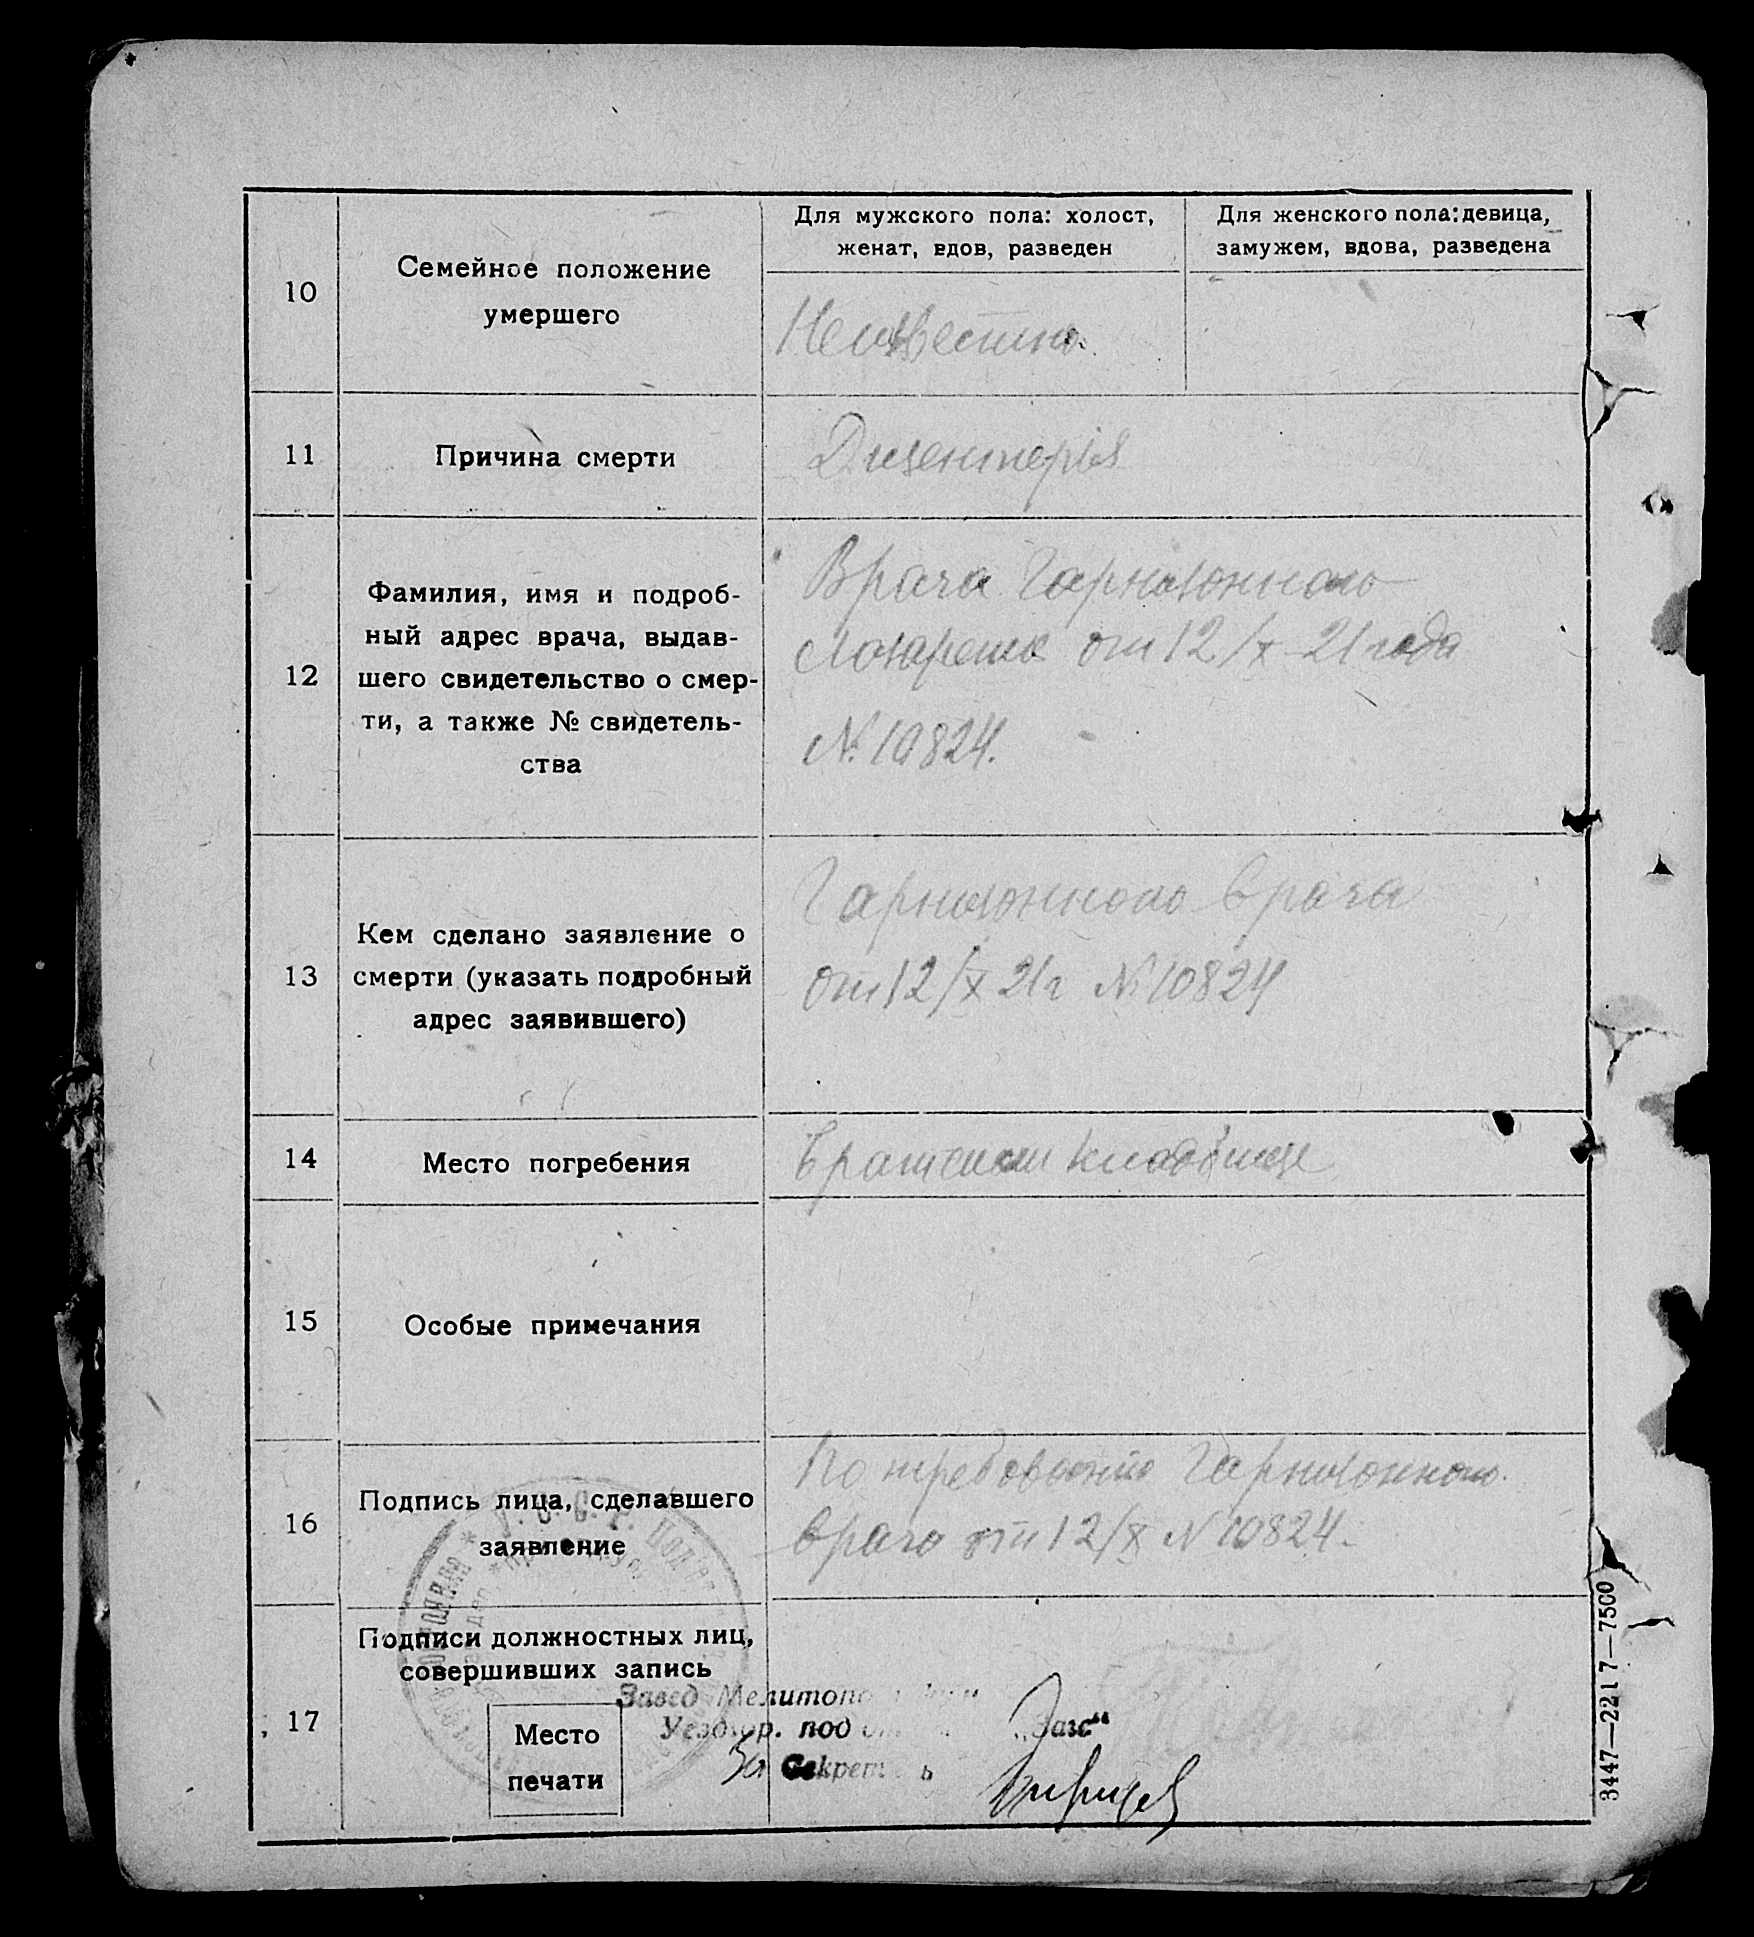 10
Семейное положение
умершего
Для мужского пола: холост,
женат, вдов, разведен
Для женского пола: девица,
замужем, вдова, разведена
Неизвестно.
11
Причина смерти
Дизентерія
12
Фамилия, имя и подроб-
ный адрес врача, выдав-
шего свидетельство о смер-
ти, а также № свидетель-
ства
Врача Гарнизонного
Лазарета от 12/X 21 года
№ 10824.
13
Кем сделано заявление о
смерти (указать подробный
адрес заявившего)
Гарнизонного врача
от 12/X 21 г № 10824
14
Место погребения
Братском кладбище
15
Особые примечания
16
Подпись лица, сделавшего
заявление
По требованию Гарнизонного
врача от 12/X № 10824.
17
Подписи должностных лиц,
совершивших запись
Место
печати
Завед Мелитопо
Уезд. гор. под „Загс“
За Секрет ь
3447—2217—7500